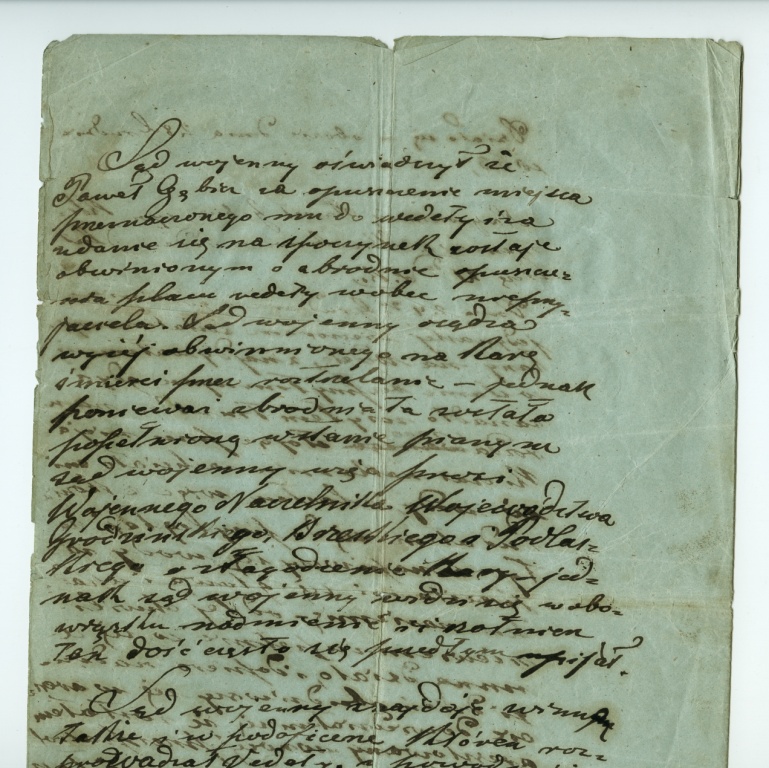 Sąd wojenny oświadczył że
Paweł Gębin za opuszczenie miejsca
przeznaczonego mu do wedety i za
udanie się na spoczynek zostaje
obwinionym o zbrodnie opuszcze-
nia placu vedety wobec nieprzy-
jaciela. Sąd wojenny osądza
wyżéj obwinnionego na Karę
śmierci przez rozstrzelanie – jednak
ponieważ zbrodnia ta została
popełnioną w stanie pianym
sąd wojenny więc prosi
Wojennego Naczelnika Województwa
Grodzińskiego, Brzeskiego i Podlas-
kiego o złagodzenie Kary – jed-
nak sąd wojenny widzi się w obo-
wiązku nadmienić iż żołnierz
ten dość często się przedtem upijał.
Sąd wojenny znajduje winnym
także i w podoficerze Którén roz-
prowadzał Vedety